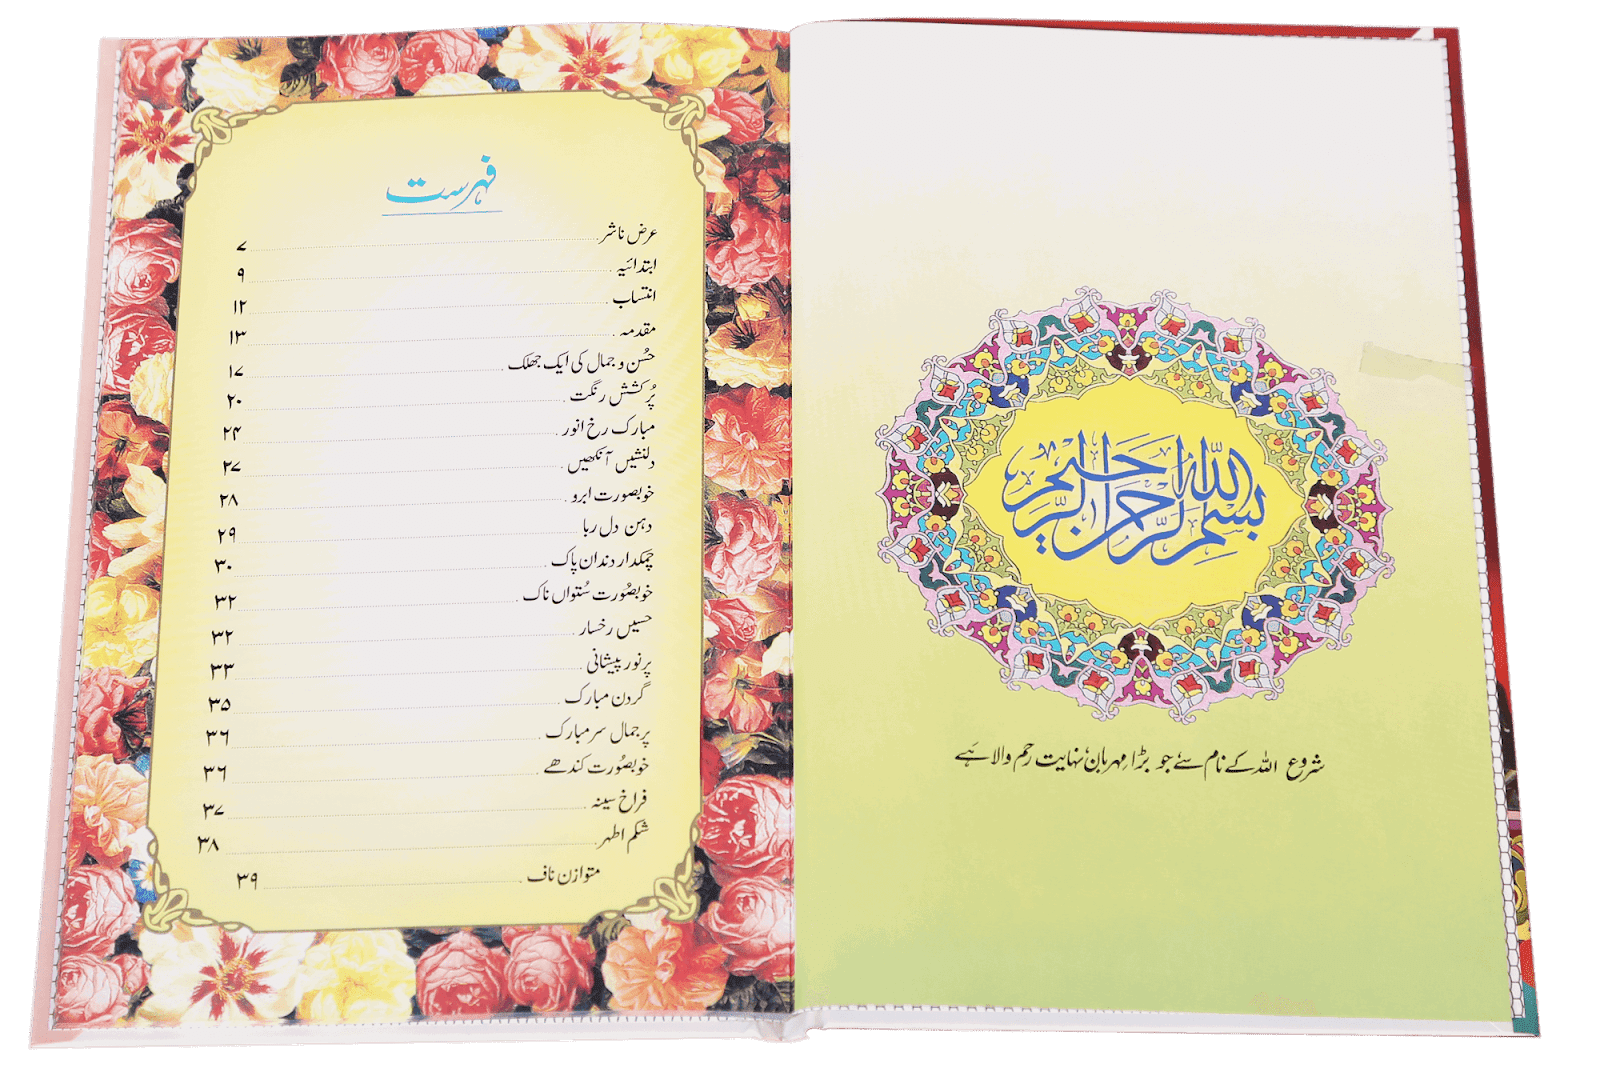 بسم الله الرحمن الرحيم
شروع اللہ کے نام سے جو بڑا مہربان نہایت رحم والا ہے
فہرست
عرض ناشر ۷
ابتدائیہ ۹
انتساب ۱۲
مقدمہ ۱۳
حُسن و جمال کی ایک جھلک ۱۷
پُرکشش رنگت ۲۰
مبارک رخ انور ۲۴
دلنشیں آنکھیں ۲۷
خوبصورت ابرو ۲۸
دہن دل ربا ۲۹
چمکدار دندان پاک ۳۰
خوبصُورت سُتواں ناک ۳۲
حسیں رخسار ۳۲
پرنور پیشانی ۳۳
گردن مبارک ۳۵
پرجمال سر مبارک ۳۶
خوبصُورت کندھے ۳۶
فراخ سینہ ۳۷
شکم اطہر ۳۸
متوازن ناف ۳۹